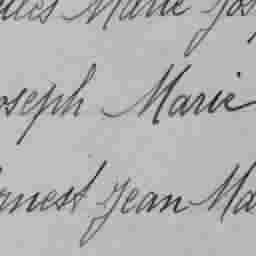 Marie Jos
oseph Marie
rnest Jean Ma